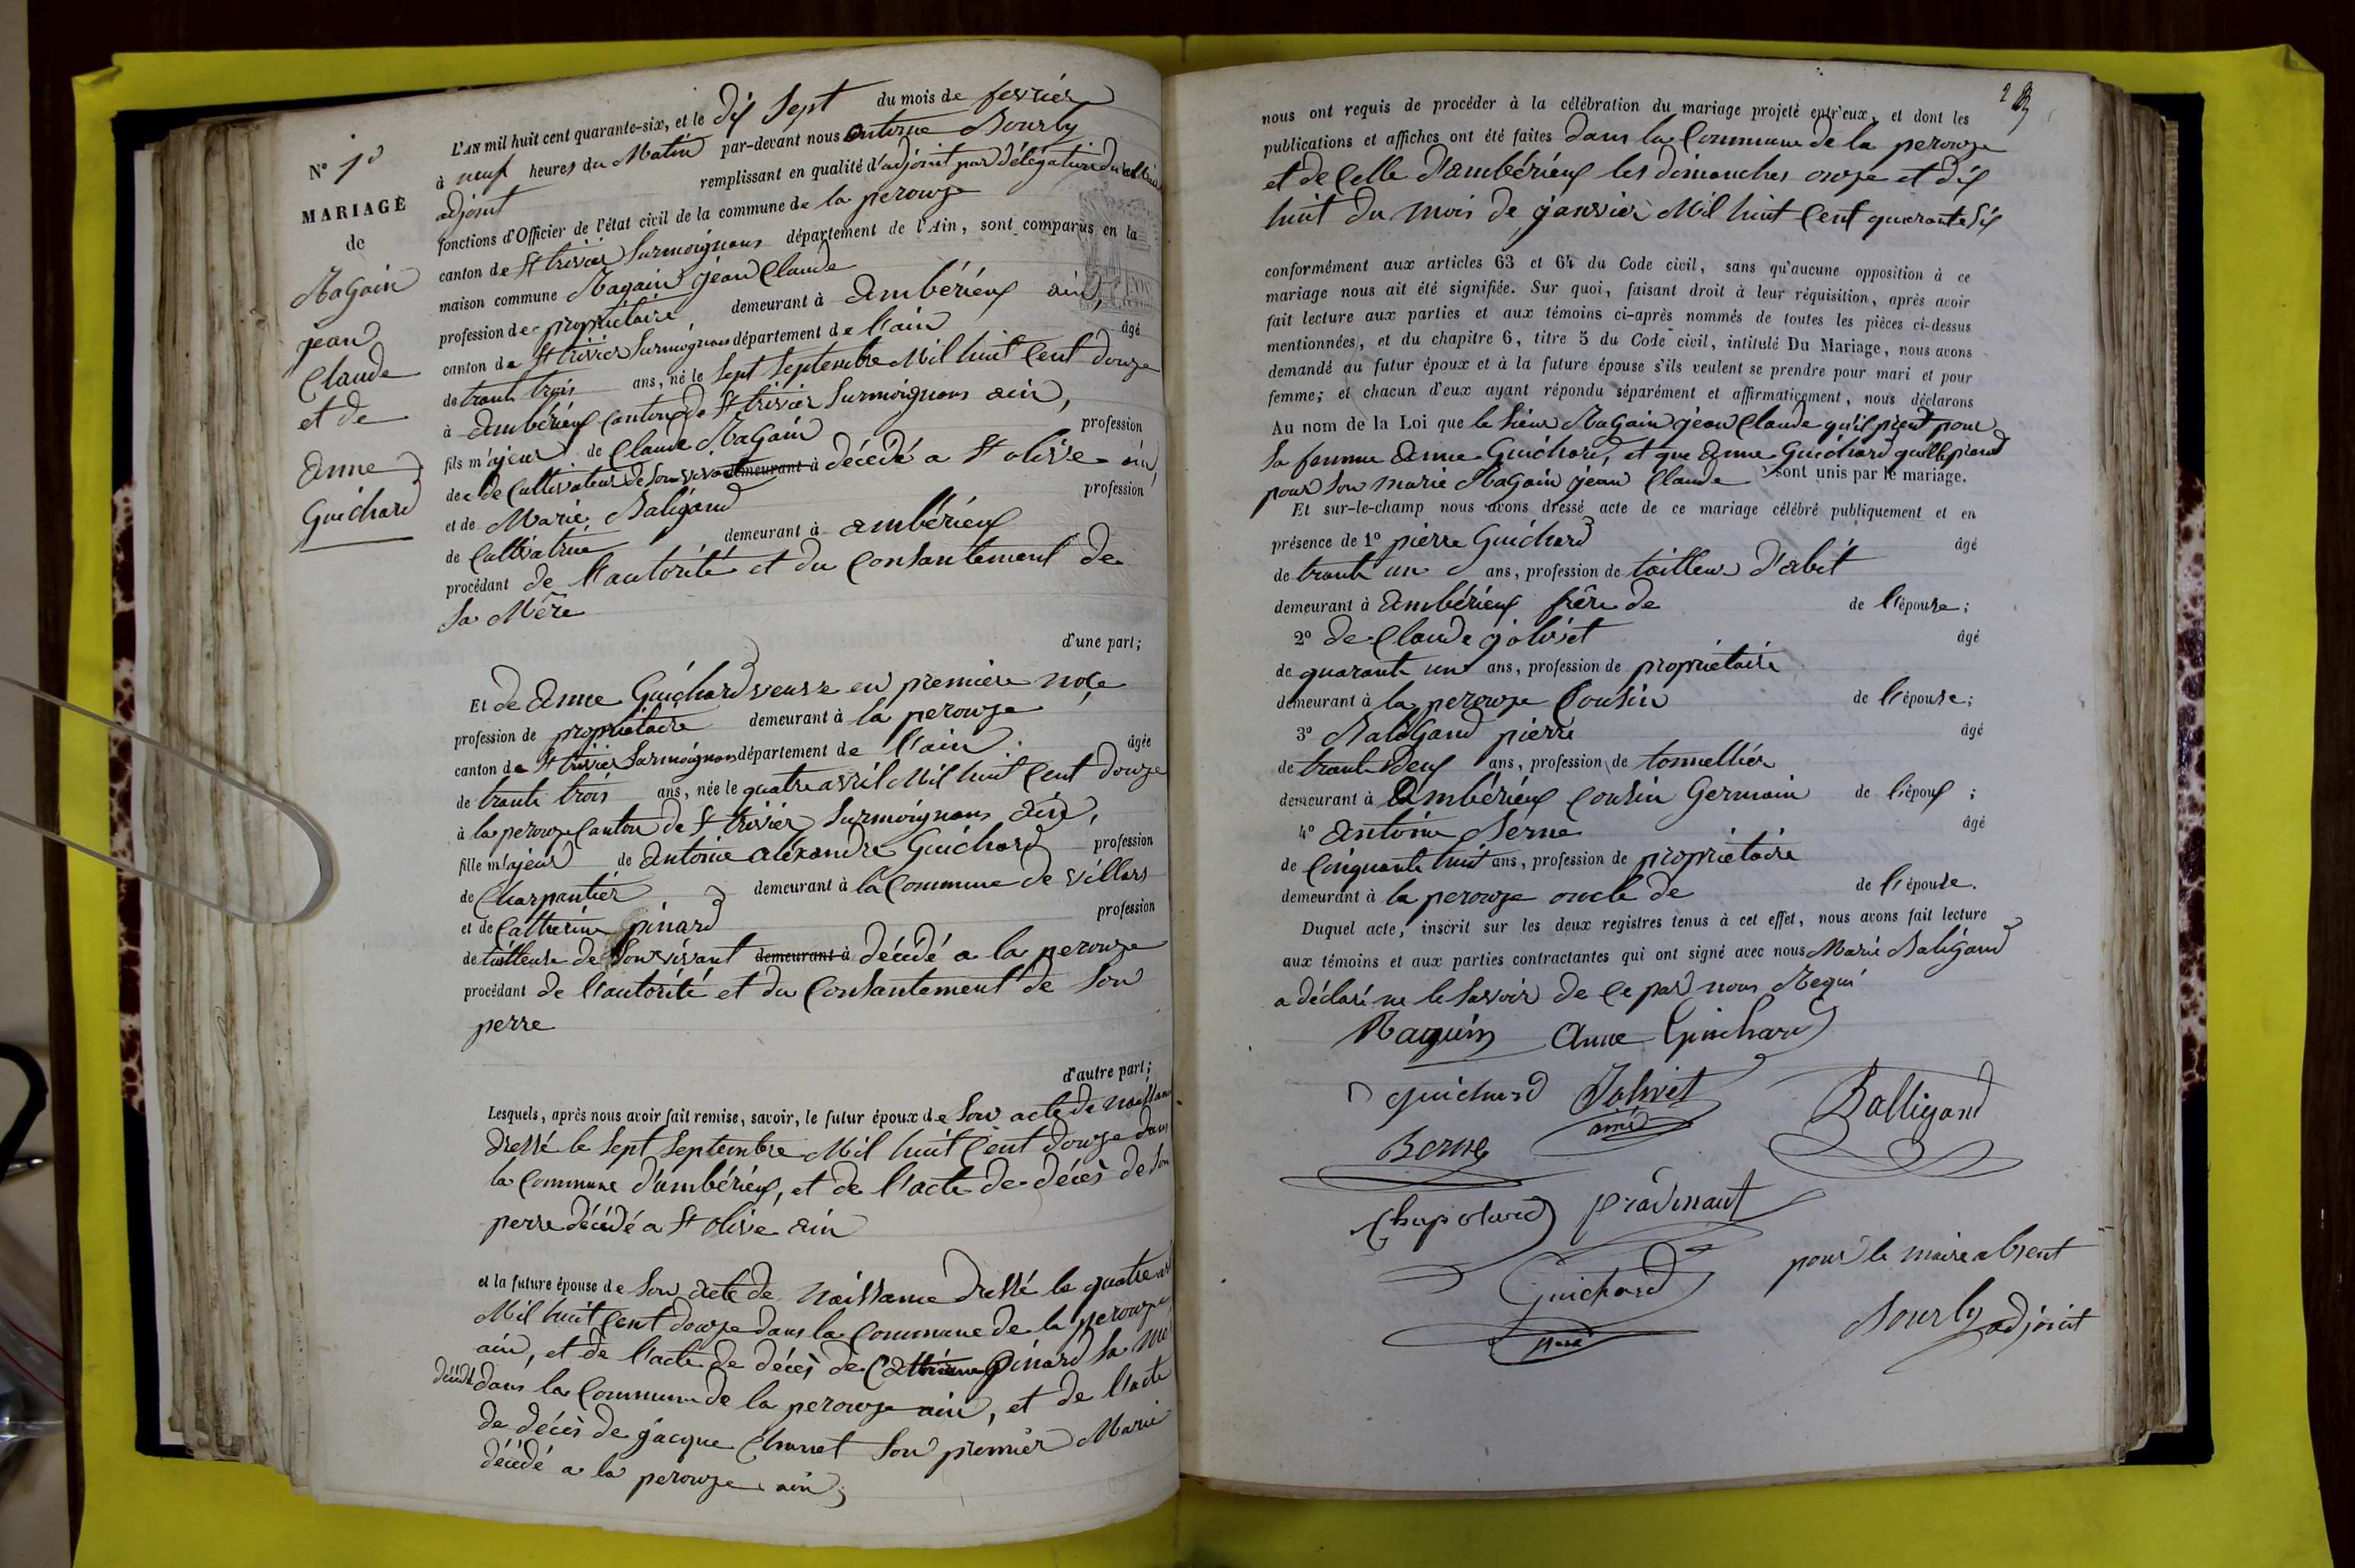 N° 1°
MARIAGE
de
Ragain
jean
Claude
et de
anne
Guichard
L'AN mil huit cent quarante-six, et le dix Sept du mois de fevrier
à neuf heures du Matin par-devant nous antoine Bourly
adjoint remplissant en qualité d'adjoint par délégation du
fonctions d'Officier de l'état civil de la commune de la perouze
canton de St trivier Surmoignans département de l'Ain, sont comparus en la
maison commune Ragain jean Claude
profession de propriétaire demeurant à ambérieux ain,
canton de St trivier Surmoignans département de l'ain âgé
de trante trois ans, né le Sept Septembre Mil huit Cent douze
à ambérieux Canton de St trivier Surmoignans ain,
fils majeur de Claude Ragain profession
de de Cultivateur de Son vivant demeurant à décédé a St olive ain
et de Marie Baligand profession
de Cultivatrice demeurant à ambérieux
procédant de l'autorité et du Consantement de
Sa Mère
d'une part;
Et de anne Guichard veuve en premiere noce
profession de propriétaire demeurant à la perouze
canton de St trivier Surmoignans département de l'ain âgée
de trante trois ans, née le quatre avril Mil huit Cent douze
à la perouze Canton de St trivier Surmoignans ain,
fille majeur de antoine alexandre Guichard profession
de Charpantier demeurant à la Commune de villars
et de Catherine pinard profession
de tailleuse de Son vivant demeurant à décédé a la perouze
procédant de l'autorité et du Consantement de Son
perre
d'autre part;
Lesquels, après nous avoir fait remise, savoir, le futur époux de Son acte de naissance
dressé le Sept Septembre Mil huit Cent douze dans
la Commune d'ambérieux, et de l'acte de décès de Son
perre décédé a St olive ain
et la future épouse de Son acte de naissance dressé le quatre
Mil huit Cent douze dans la Commune de la perouze
ain, et de l'acte de décès de Catherine pinard Sa
décédé dans la Commune de la perouze ain, et de l'acte
de décès de jacque Chanet Son premier Marie
décédé a la perouze ain;
nous ont requis de procéder à la célébration du mariage projeté entr'eux, et dont les
publications et affiches ont été faites dans la Commune de la perouze
et de Celle d'ambérieux les dimanches onze et dix
huit du mois de janvier Mil huit Cent quarante Six
conformément aux articles 63 et 64 du Code civil, sans qu'aucune opposition à ce
mariage nous ait été signifiée. Sur quoi, faisant droit à leur réquisition, après avoir
fait lecture aux parties et aux témoins ci-après nommés de toutes les pièces ci-dessus
mentionnées, et du chapitre 6, titre 5 du Code civil, intitulé Du Mariage, nous avons
demandé au futur époux et à la future épouse s'ils veulent se prendre pour mari et pour
femme; et chacun d'eux ayant répondu séparément et affirmativement, nous déclarons
Au nom de la Loi que le Sieur Ragain jean Claude qu'il prent pour
Sa femme Anne Guichard, et que Anne Guichard quelle prend
pour Son marie Ragain jean Claude sont unis par le mariage.
Et sur-le-champ nous avons dressé acte de ce mariage célébré publiquement et en
présence de 1° pierre Guichard âgé
de trante un ans, profession de tailleur d'abit
demeurant à ambérieux frère de de l'épouse;
2° de Claude jolivet âgé
de quarante un ans, profession de propriétaire
demeurant à la perouze Cousin de l'épouse;
3° Baligand pierre âgé
de trante deux ans, profession de tonnellier
demeurant à ambérieux Cousin Germain de l'époux;
4° antoine Berne âgé
de Cinquante huit ans, profession de propriétaire
demeurant à la perouze oncle de de l'épouse.
Duquel acte, inscrit sur les deux registres tenus à cet effet, nous avons fait lecture
aux témoins et aux parties contractantes qui ont signé avec nous Marie Baligand
a déclaré ne le Savoir de Ce par nous Requi
Raguin Anne Guichard
guichard Jolivet
aîné
Balligand
Berne
Chapolard pradinaut
Guichard
père
pour le maire absent
Bourly adjoint